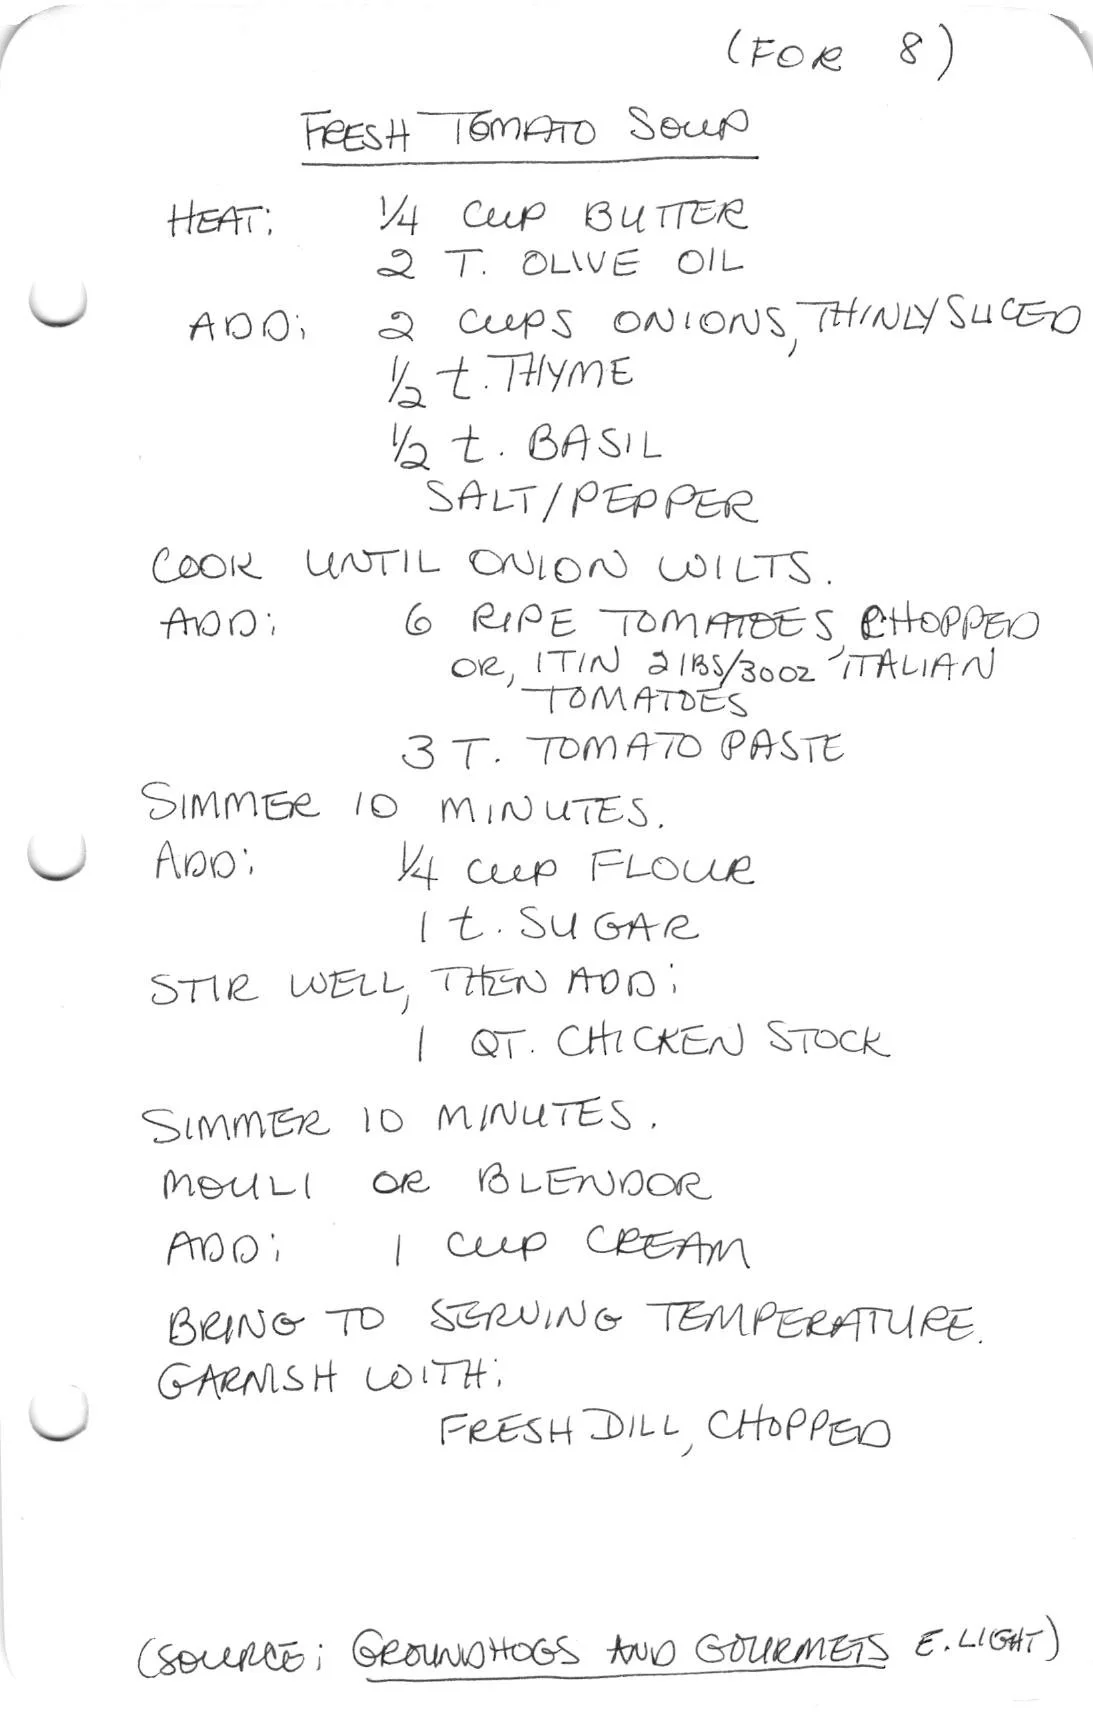 (FOR 8)
FRESH TOMATO SOUP
HEAT: 1/4 CUP BUTTER
2 T. OLIVE OIL
ADD: 2 CUPS ONIONS, THINLY SLICED
1/2 t. THYME
1/2 t. BASIL
SALT/PEPPER
COOK UNTIL ONION WILTS.
ADD: 6 RIPE TOMATOES, CHOPPED
OR, 1 TIN 2 LBS/3 OOZ ITALIAN
TOMATOES
3 T. TOMATO PASTE
SIMMER 10 MINUTES.
ADD: 1/4 CUP FLOUR
1 t. SUGAR
STIR WELL, THEN ADD:
1 QT. CHICKEN STOCK
SIMMER 10 MINUTES.
MOULI OR BLENDOR
ADD: 1 CUP CREAM
BRING TO SERVING TEMPERATURE.
GARNISH WITH:
FRESH DILL, CHOPPED
(SOURCE: GROUNDHOGS AND GOURMETS E. LIGHT)